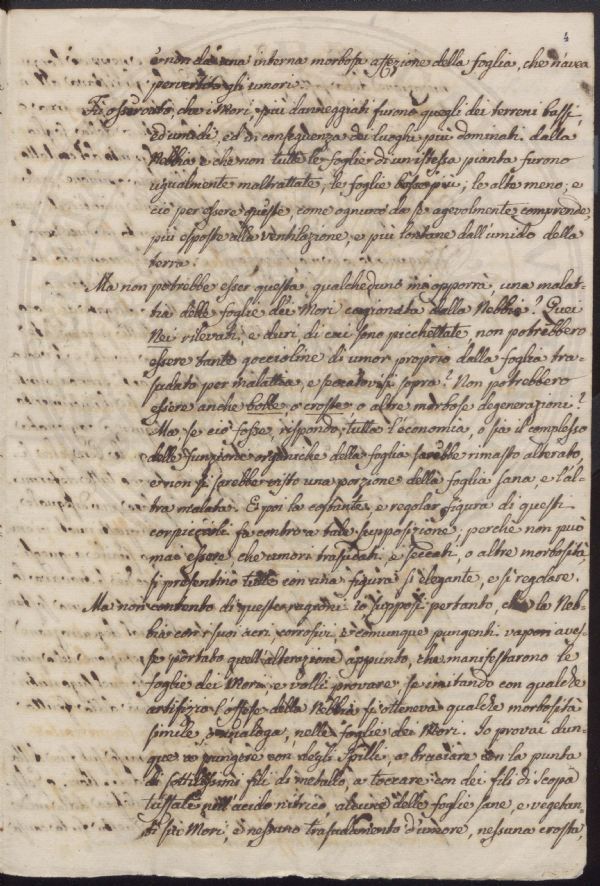 4
e non da una interna morbosa affezione della foglia, che n'avea
pervertito gli umori.
Fu osservato, che i Mori più danneggiati furono quegli dei terreni bassi,
ed umidi, ed di conseguenza dei luoghi più dominati dalla
Nebbia e che non tutte le foglie di un istessa pianta furono
ugualmente maltrattate, le foglie basse più, le alte meno; e
ciò per essere queste, come ognuno da se agevolmente comprende,
più esposte alla ventilazione, e più lontane dall'umido della
terra.
Ma non potrebbe esser questa qualcheduno m'opporrà, una malat-
tia delle foglie dei Mori cagionata dalla Nebbia? Quei
Nei rilevati, e duri, di cui sono picchettate non potrebbero
essere tante goccioline di umor proprio dalla foglia tra-
sudato per malattia, e seccatovisi sopra? Non potrebbero
essere anche bolle, o croste, o altre morbose degenerazioni?
Ma se ciò fosse, rispondo, tutta l'economica, o sia il complesso
delle funzione organiche della foglia sarebbe rimasto alterato,
e non si sarebbe visto una porzione della foglia sana, e l'al-
tra malata. E poi la costante, e regolar figura di questi
corpicciuoli fa contro a tale supposizione, perchè non può
mai essere, che umori trasudati e seccati, o altre morbosità,
si presentino tutte con una figura sì elegante, e sì regolare.
Ma non contento di queste ragioni io supposi pertanto, che la Neb-
bia con i suoi acri corrosivi e comunque pungenti vapori aves-
se portato quell'alterazione appunto, che manifestarono le
foglie dei Mori e volli provare se imitando con qualche
artifizio l'offese della Nebbia si otteneva qualche morbosità
simile, o analoga, nelle foglie dei Mori. Io provai dun-
que a pungere con degli Spilli, a bruciare con la punta
di sottilissimi fili di metallo, a toccare con dei fili di scopa
tuffati nell'acido nitrico, alcune delle foglie sane, e vegetan-
ti su i Mori, e nessuno trasudamento d'umore, nessuna crosta,